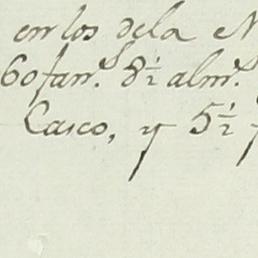 en los de la
60 fan.s 8½ alm.s
Casco, y 5½